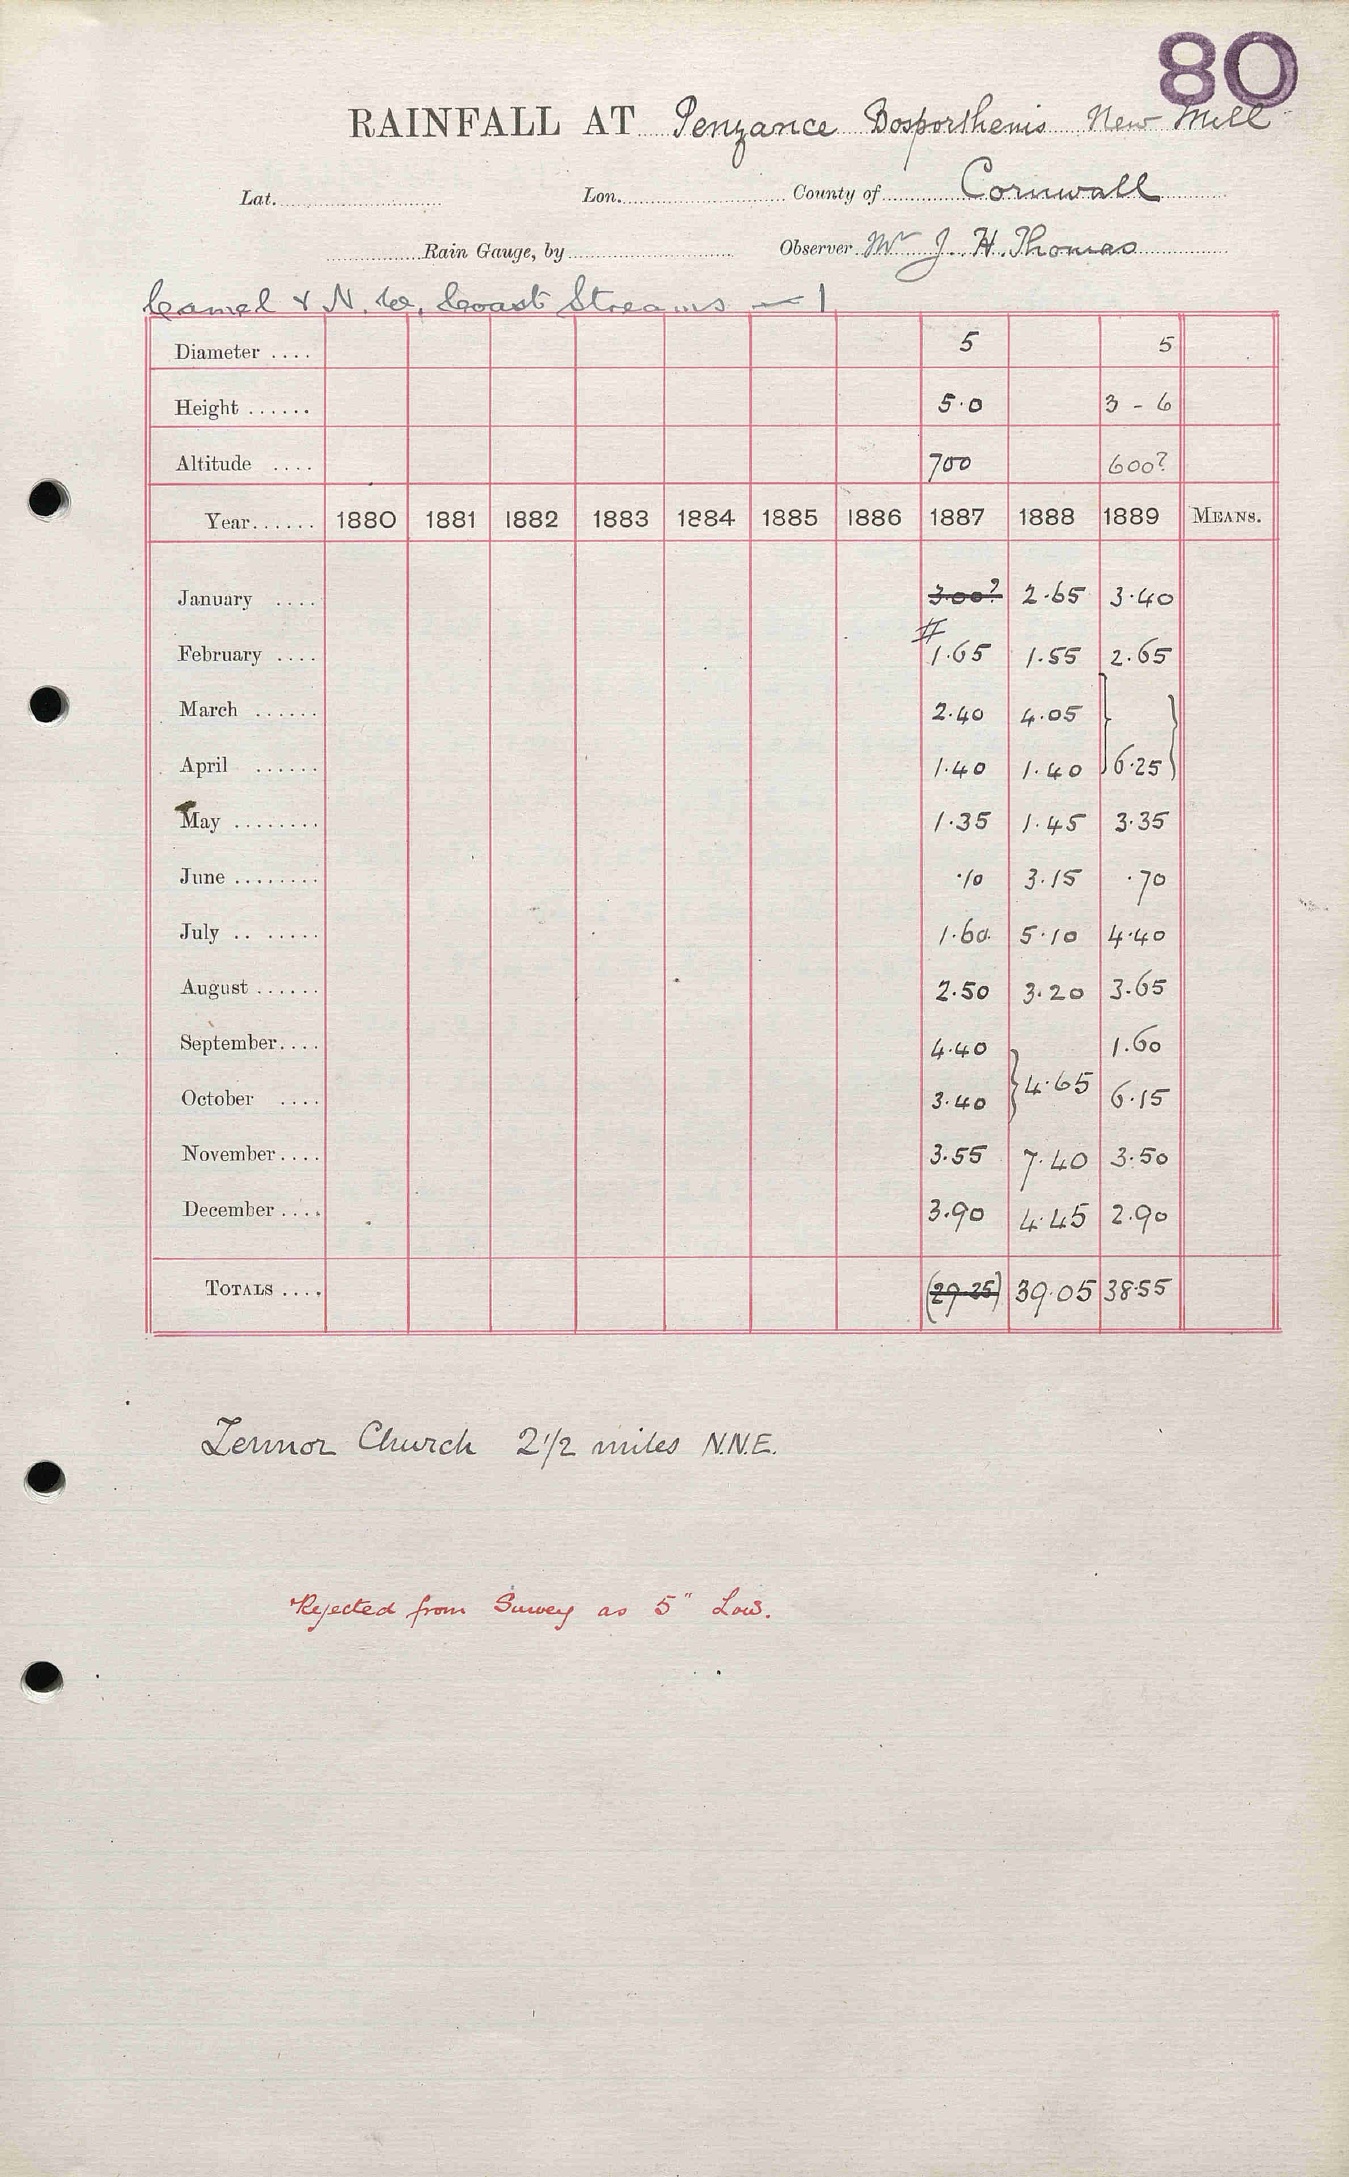 80
RAINFALL AT Penzance Bosporthenis New Mill
Lat. Lon. County of Cornwall
Rain Gauge, by Observer Mr J. H. Thomas
Camel & N. W. Coast Streams — 1
Diameter .... 5 5
Height ...... 5.0 3 - 6
Altitude .... 700 600?
Year...... 1880 1881 1882 1883 1884 1885 1886 1887 1888 1889 MEANS.
January .... 3.00? 2.65 3.40
February .... #1.65 1.55 2.65
March ...... 2.40 4.05
April ...... 1.40 1.40 } 6.25 }
May ........ 1.35 1.45 3.35
June ........ .10 3.15 .70
July .. ..... 1.60 5.10 4.40
August ...... 2.50 3.20 3.65
September.... 4.40 1.60
October .... 3.40 } 4.65 6.15
November.... 3.55 7.40 3.50
December .... 3.90 4.45 2.90
TOTALS .... (29.25) 39.05 38.55
Zennor Church 2 1/2 miles N.N.E.
Rejected from Survey as 5" Low.